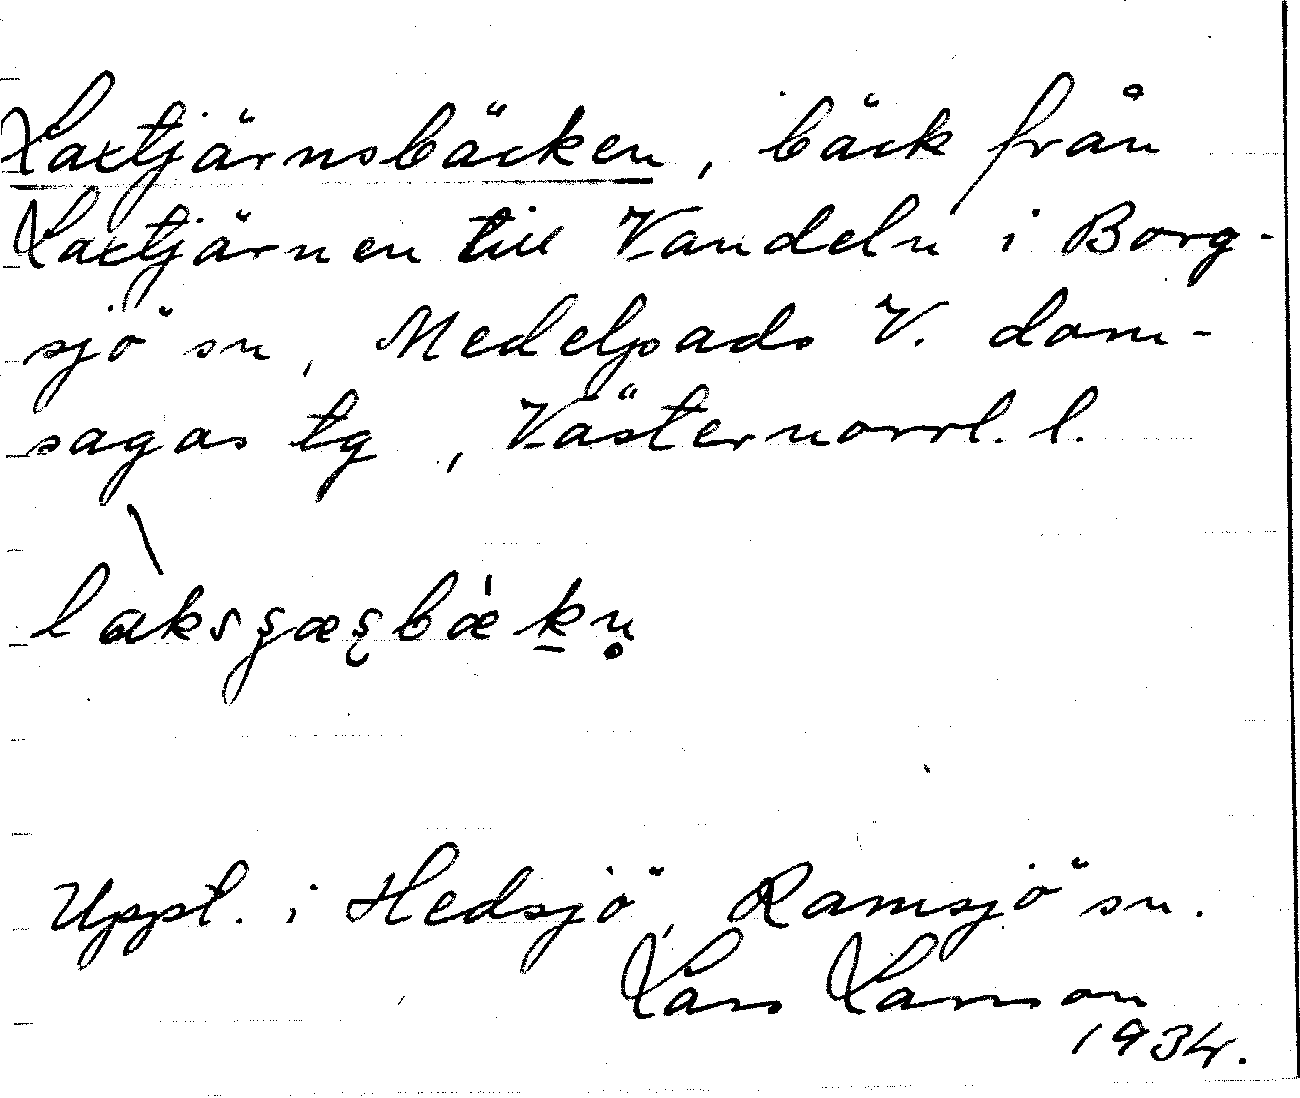 Laxtjärnsbäcken, bäck från
Laxtjärnen till Vandeln i Borg-
sjö sn, Medelpads V. dom-
sagas tg, Västernorrl. l.
Uppl. i Hedsjö, Ramsjö sn.
Lars Larsson
1934.